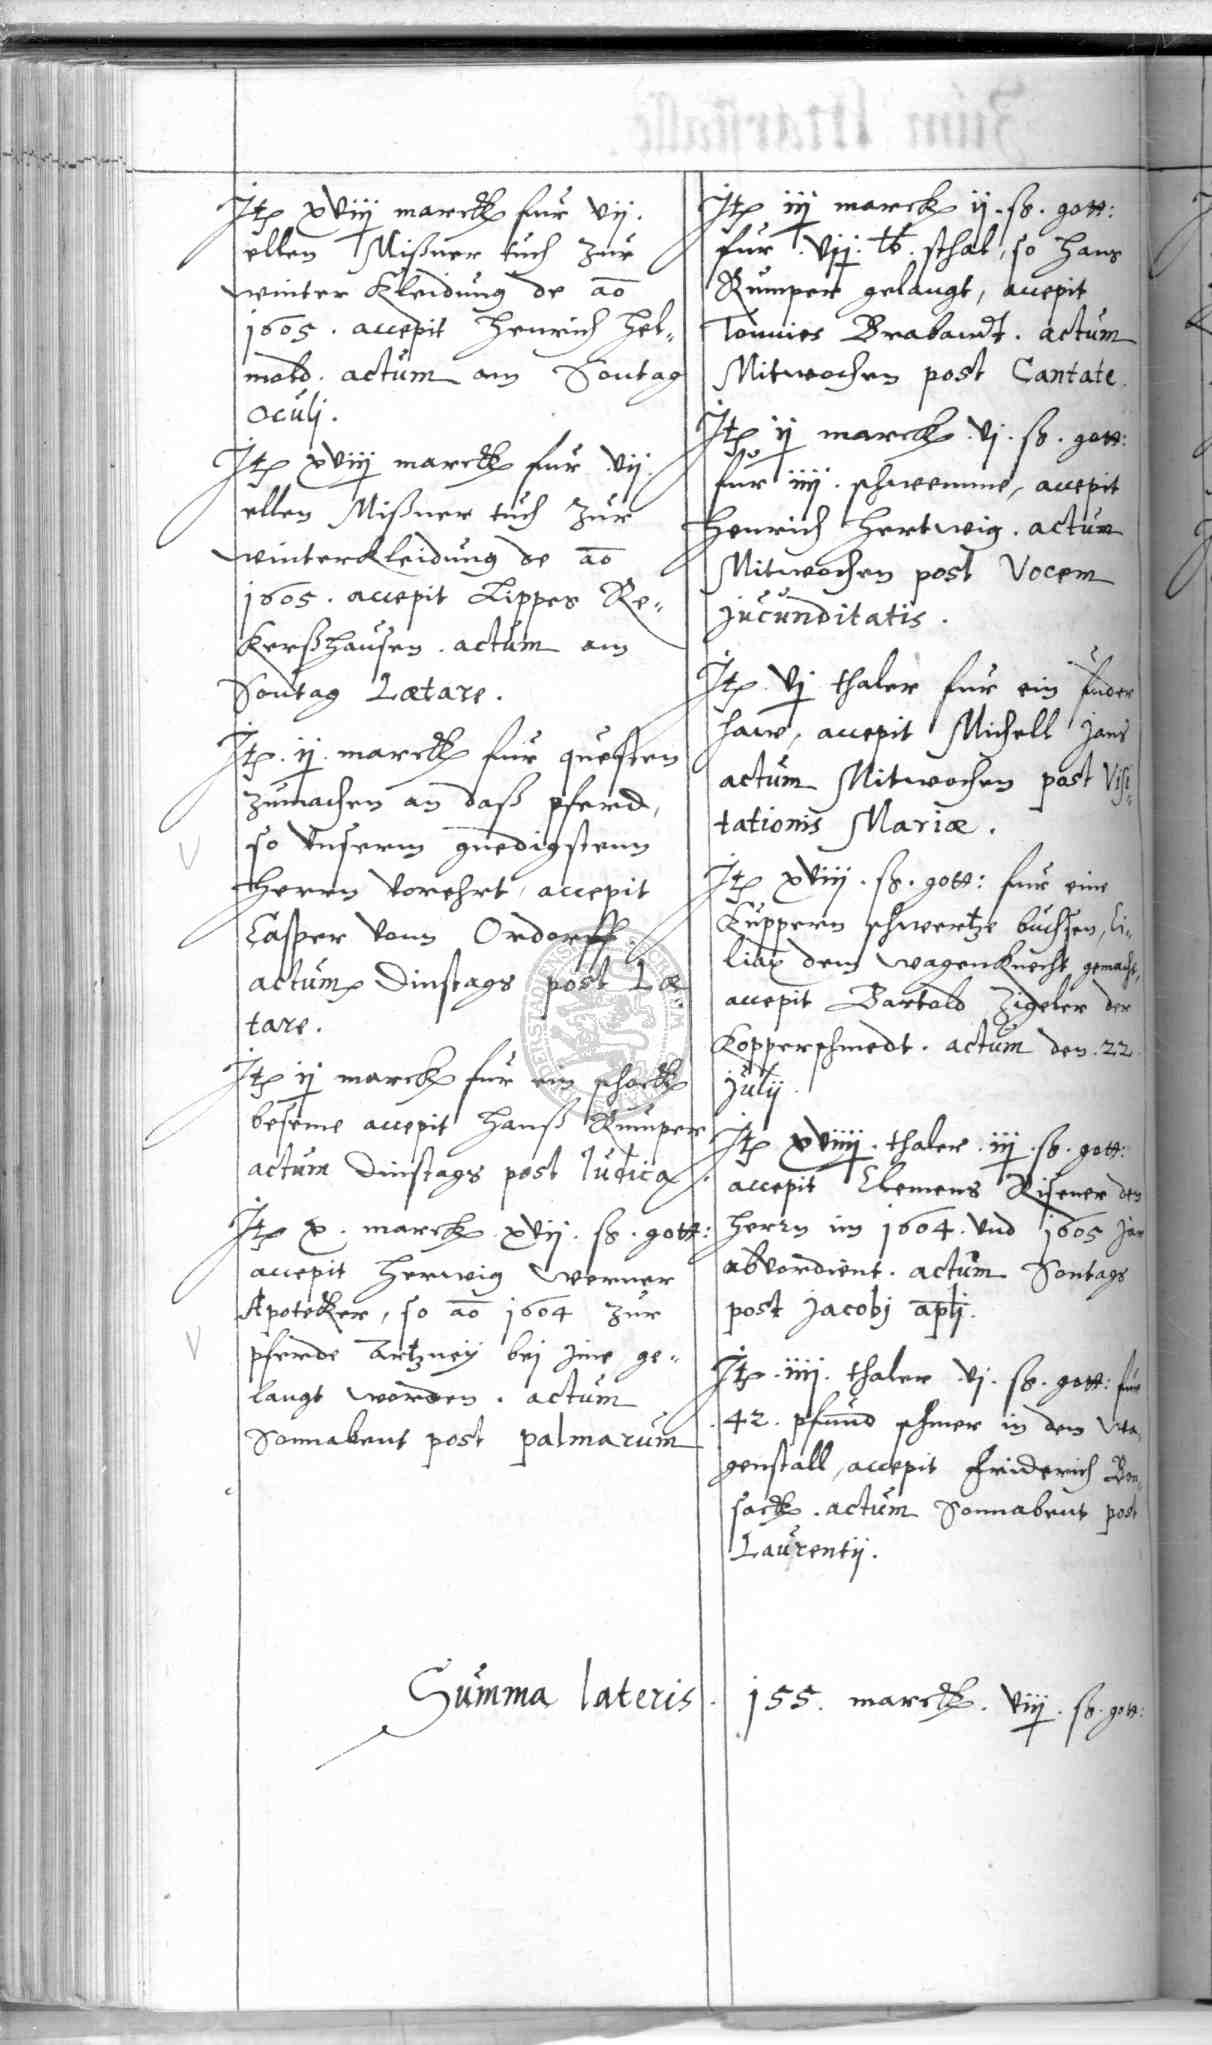 Jtꝫ xviij marckk fur vij.
ellen Mißner tuch zur
winter Kleidung de ao
1605. accepit Henrich Hel„
mold. actum am Sontag
Oculj.
Jtꝫ xviij marckk fur vij.
ellen Mißner tuch zur
winterKleidung de ao
1605. accepit Lippes Re„
Kerßhausen. actum am
Sontag Lætare.
Jtꝫ. ij. marckk fur questen
zumachen an daß pferd,
so vnserm gnedigstenn
Herrn vorehrt, accepit
Casper vonn Ordorff.
actum Dinstags post Læ„
tare.
Jtꝫ ij marck fur ein schockk
beseme accepit Hanß Rumper
actum Dinstags post Iudica.
Jtꝫ x. marck xvij. ß. gott:
accepit Herwig Werner
Apoteker, so ao 1604 zur
pferde Artzney bej jme ge„
langt worden. actum
Sonnabent post palmarum
Jtꝫ iij marck ij. ß. gott:
fur .vij. tb. sthal, so Hans
Rumper gelangt, accepit
Tonnies Brabandt. actum
Mitwochen post Cantate.
Jtꝫ ij marck vj. ß. gott:
fur iiij. schwemme, accepit
Henrich Hertwig. actum
Mitwochen post Vocem
jucunditatis.
Jtꝫ vj thaler fur ein fuder
haw, accepit Michell Jans
actum Mitwochen post Visi„
tationis Mariæ.
Jtꝫ xviij. ß. gott: fur eine
Kuppern schwertze buchsen, Ci„
liax dem wagenKnecht gemacht,
accepit Bartold Zigeler der
Kopperschmedt. actum den .22.
julij.
Jtꝫ xviiij. thaler iij. ß. gott:
accepit Clemens Risener den
Herrn im 1604. vnd 1605 jar
abvordient. actum Sontags
post jacobj aplj.
Jtꝫ .iiij. thaler vj. ß. gott: fur
42. pfund schmer in den Wa„
genstall, accepit Friderich Bon„
sackk. actum Sonnabent post
Laurentij.
Summa lateris. 155. marckk. viij. ß. gott: